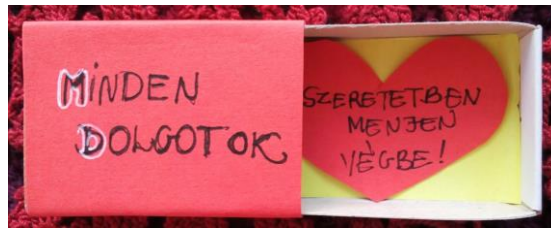 MINDEN
DOLGOTOK
SZERETETBEN
MENJEN
VÉGBE!